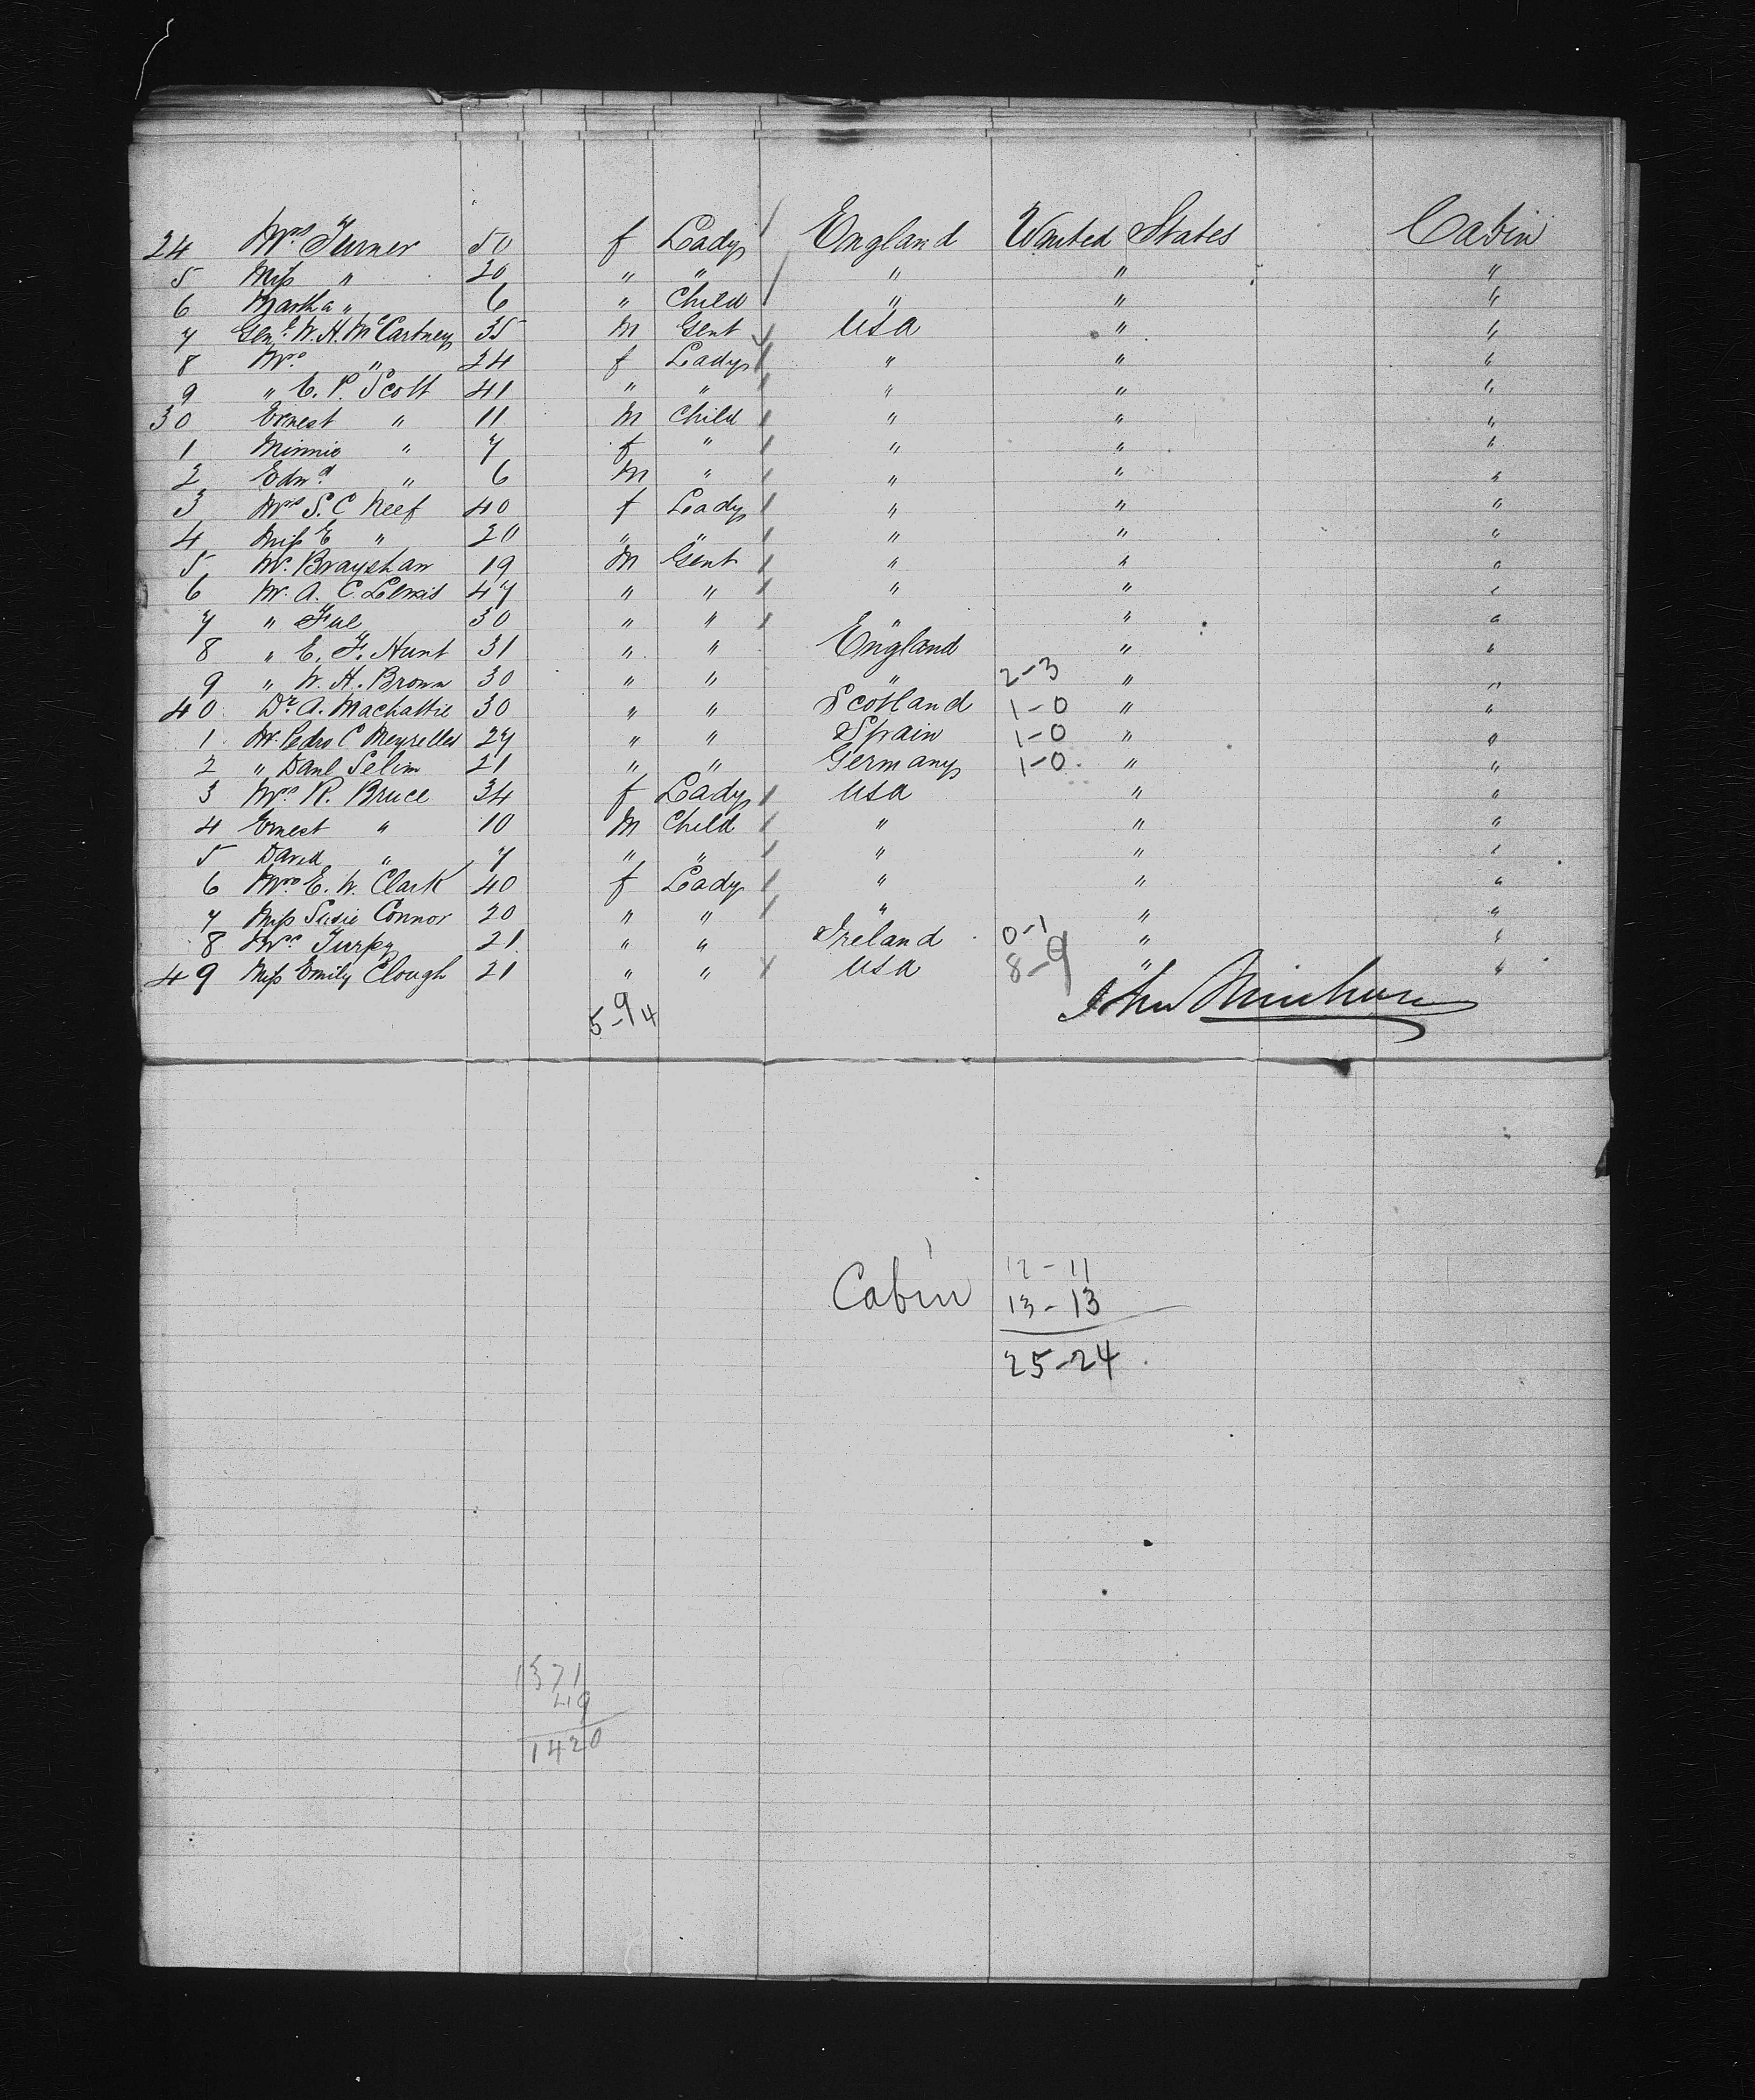 24 Mrs Turner 50 f Lady England United States Cabin
5 Miss " 20 " " " " "
6 Martha " 6 " Child " " "
7 Genl W. H. McCartney 35 M Gent USA " "
8 Mrs " 24 f Lady " " "
9 " C. P. Scott 41 " " " " "
30 Ernest " 11 M Child " " "
1 Minnie " 7 f " " " "
2 Edwd " 6 M " " " "
3 Mrs S. C Neef 40 f Lady " " "
4 Miss E " 20 " " " " "
5 Mr. Brayshaw 19 M Gent " " "
6 Mr. A. C. Lewis 47 " " " " "
7 " 30 " " " " "
8 " E. F. Hunt 31 " " England " "
9 " W. H. Brown 30 " " " 2-3 " "
40 Dr A. Machattie 30 " " Scotland 1-0 " "
1 Mr. Pedro C Meyrelles 27 " " Spain 1-0 " "
2 " Danl Selim 21 " " Germany 1-0 " "
3 Mrs R. Bruce 34 f Lady USA " "
4 Ernest " 10 M Child " " "
5 David " 7 " " " " "
6 Mrs E. W. Clark 40 f Lady " " "
7 Miss Susie Connor 20 " " " " "
8 Mrs Turpy 21 " " Ireland 0-1 " "
49 Miss Emily Clough 21 " " USA 8-9 " "
5-9/4 John
12-11
Cabin 13-13
25-24
1371
49
1420